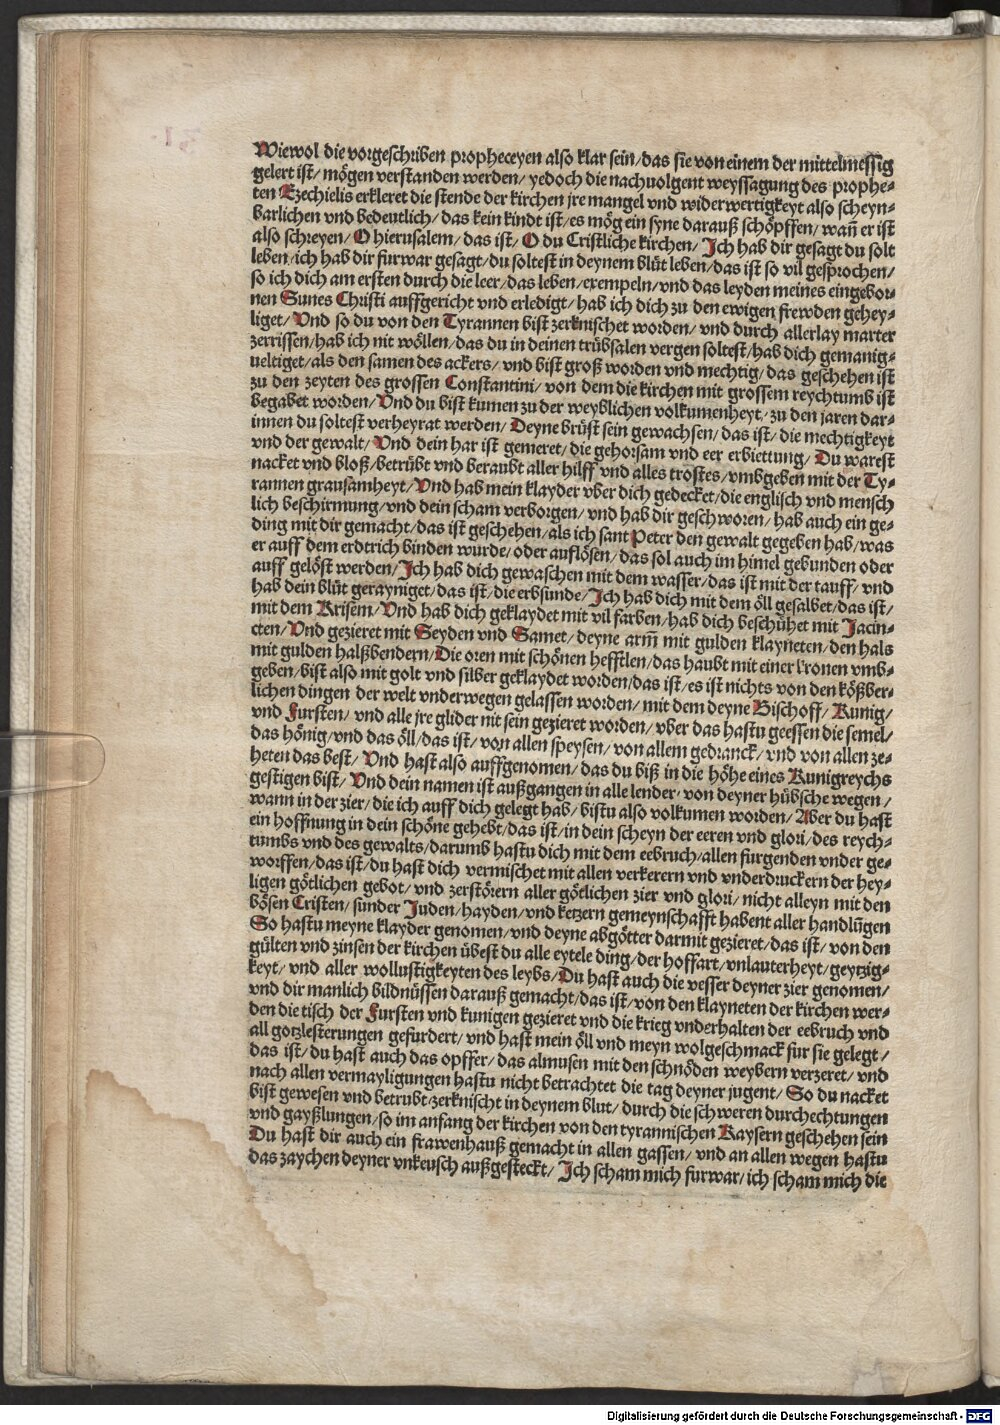 Wiewol die vorgeschriben propheceyen also klar sein/das sie von einem der mittelmessig
gelert ist/ mögen verstanden werden/ yedoch die nachuolgent weyssagung des prophe-
ten Ezechielis erkleret die stende der kirchen jre mangel vnd widerwertigkeyt also scheyn-
barlichen vnd bedeutlich/das kein kindt ist/es mög ein syne darauß schöpffen/wañ er ist
also schreyen/O hierusalem/das ist/O du Cristliche kirchen/Ich hab dir gesagt du solt
leben/ich hab dir furwar gesagt/du soltest in deynem blůt leben/das ist so vil gesprochen/
so ich dich am ersten durch die leer/das leben/exempeln/vnd das leyden meines eingebor-
nen Sunes Christi auffgericht vnd erledigt/hab ich dich zu den ewigen frewden gehey-
liget/Vnd so du von den Tyrannen bist zerknischet worden/vnd durch allerlay marter
zerrissen/hab ich nit wöllen/das du in deinen trübsalen vergen soltest/hab dich gemanig-
ueltiget/als den samen des ackers/ vnd bist groß worden vnd mechtig/das geschehen ist
zu den zeyten des grossen Constantini/ von dem die kirchen mit grossem reychtumb ist
begabet worden/Vnd du bist kumen zu der weyblichen volkumenheyt/zu den jaren dar-
innen du soltest verheyrat werden/Deyne brüst sein gewachsen/das ist/die mechtigkeyt
vnd der gewalt/Vnd dein har ist gemeret/die gehorsam vnd eer erbiettung/Du warest
nacket vnd bloß/betrübt vnd beraubt aller hilff vnd alles trostes/vmbgeben mit der Ty-
rannen grausamheyt/Vnd hab mein klayder vber dich gedecket/die englisch vnd mensch
lich beschirmung/vnd dein scham verborgen/vnd hab dir geschworen/hab auch ein ge-
ding mit dir gemacht/das ist geschehen/als ich sant Peter den gewalt gegeben hab/was
er auff dem erdtrich binden wurde/oder auflösen/das sol auch im himel gebunden oder
auff gelöst werden/Ich hab dich gewaschen mit dem wasser/das ist mit der tauff/vnd
hab dein blůt gerayniget/das ist/die erbsunde/Ich hab dich mit dem öll gesalbet/das ist/
mit dem Krisem/Vnd hab dich geklaydet mit vil farben/hab dich beschühet mit Jacin-
cten/Vnd gezieret mit Seyden vnd Samet/deyne arm̃ mit gulden klayneten/den hals
mit gulden halßbendern/Die oren mit schönen hefftlen/das haubt mit einer kronen vmb-
geben/bist also mit golt vnd silber geklaydet worden/das ist/es ist nichts von den kößber-
lichen dingen der welt vnderwegen gelassen worden/mit dem deyne Bischoff/Kunig/
vnd Fursten/vnd alle jre glider nit sein gezieret worden/vber das hastu geessen die semel/
das hönig/vnd das öll/das ist/von allen speysen/von allem gedranck/vnd von allen ze-
heten das best/Vnd hast also auffgenomen/das du biß in die höhe eines Kunigreychs
gestigen bist/Vnd dein namen ist außgangen in alle lender/von deyner hübsche wegen/
wann in der zier/die ich auff dich gelegt hab/bistu also volkumen worden/Aber du hast
ein hoffnung in dein schöne gehebt/das ist/in dein scheyn der eeren vnd glori/des reych-
tumbs vnd des gewalts/darumb hastu dich mit dem eebruch/allen furgenden vnder ge-
worffen/das ist/du hast dich vermischet mit allen verkerern vnd vnderdruckern der hey-
ligen götlichen gebot/vnd zerstörern aller götlichen zier vnd glori/nicht alleyn mit den
bösen Cristen/sunder Juden/hayden/vnd ketzern gemeynschafft habent aller handlũgen
So hastu meyne klayder genomen/vnd deyne abgötter darmit gezieret/das ist/von den
gülten vnd zinsen der kirchen übest du alle eytele ding/der hoffart/vnlauterheyt/geytzig-
keyt/vnd aller wollustigkeyten des leybs/Du hast auch die vesser deyner zier genomen/
vnd dir manlich bildnüssen darauß gemacht/das ist/von den klayneten der kirchen wer-
den die tisch der Fursten vnd kunigen gezieret vnd die krieg vnderhalten der eebruch vnd
all gotzlesterungen gefurdert/vnd hast mein öll vnd meyn wolgeschmack fur sie gelegt/
das ist/du hast auch das opffer/das almusen mit den schnöden weybern verzeret/vnd
nach allen vermayligungen hastu nicht betrachtet die tag deyner jugent/So du nacket
bist gewesen vnd betrubt/zerknischt in deynem blut/durch die schweren durchechtungen
vnd gayßlungen/so im anfang der kirchen von den tyrannischen Kaysern geschehen sein
Du hast dir auch ein frawenhauß gemacht in allen gassen/vnd an allen wegen hastu
das zaychen deyner vnkeusch außgesteckt/Ich scham mich furwar/ich scham mich die
Digitalisierung gefördert durch die Deutsche Forschungsgemeinschaft - DFG